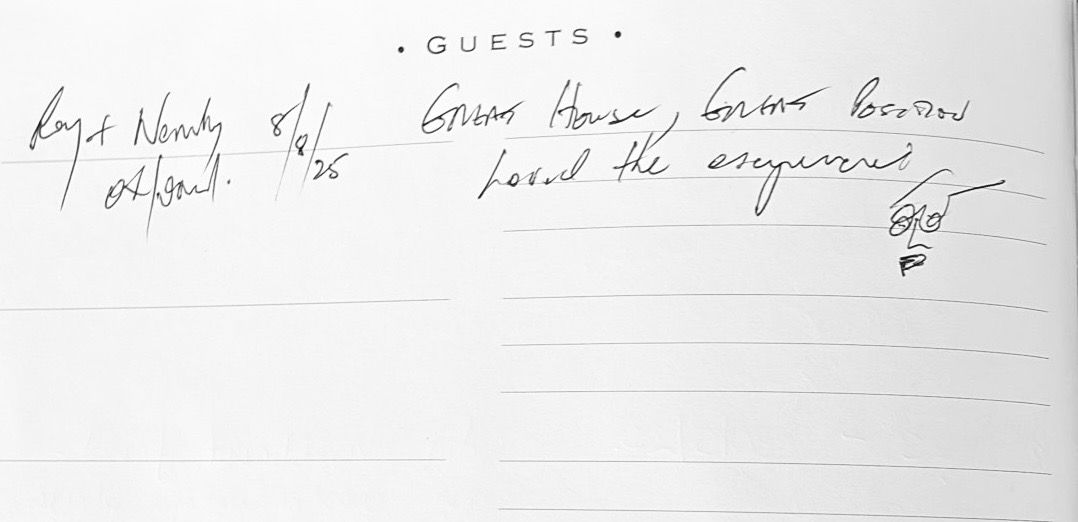 • GUESTS •
Roy + Wendy 8/8/25
Oxford.
GREAT House, GREAT Position
Loved the experience